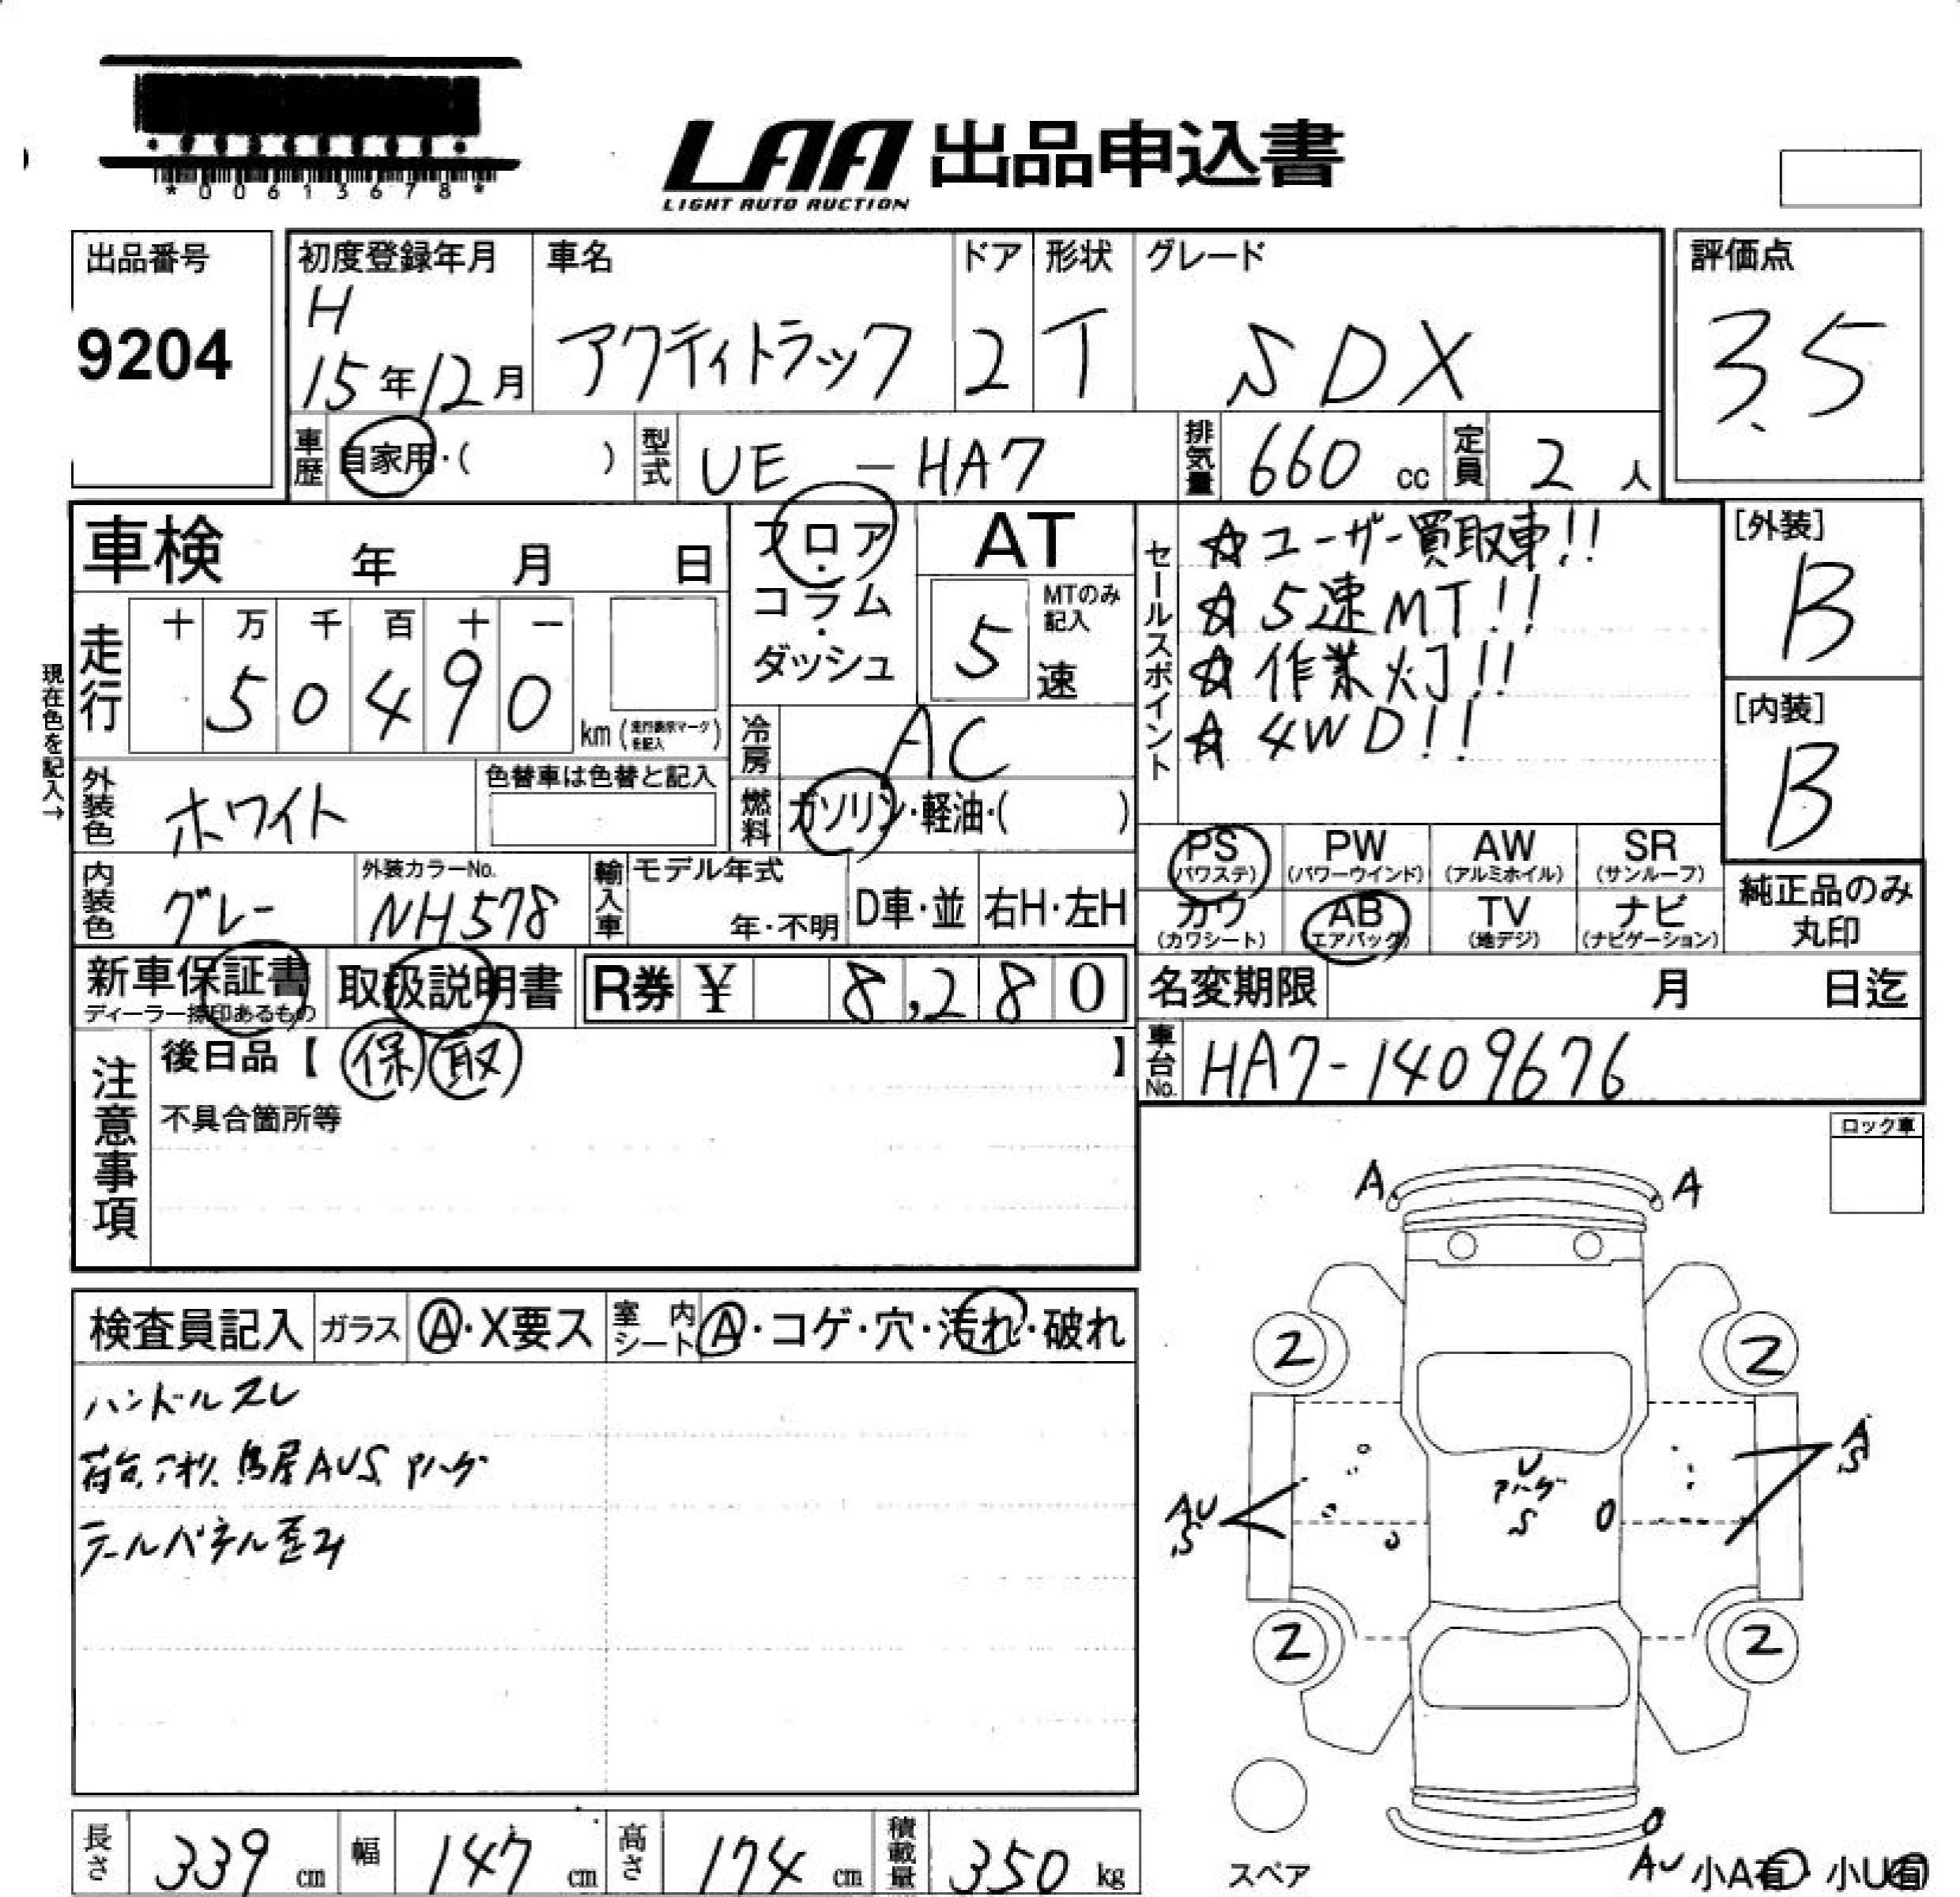 *00613678*
LAA 出品申込書
LIGHT AUTO AUCTION
出品番号
9204
初度登録年月
H
15年12月
車名
アクティトラック
ドア
2
形状
T
グレード
SDX
評価点
3.5
車歴
自家用・( )
型式
UE-HA7
排気量
660 cc
定員
2 人
車検 年 月 日
フロア・コラム・ダッシュ
AT
MTのみ記入
5 速
セールスポイント
☆ユーザー買取車!!
☆5速MT!!
☆作業灯!!
☆4WD!!
[外装]
B
[内装]
B
現在色を記入→
走行
十 万 千 百 十 一
5 0 4 9 0
km (走行表示マークを記入)
冷房
AC
外装色
ホワイト
色替車は色替と記入
燃料
ガソリン・軽油・( )
内装色
グレー
外装カラーNo.
NH578
輸入車
モデル年式
年・不明
D車・並
右H・左H
PS (パワステ)
PW (パワーウインド)
AW (アルミホイル)
SR (サンルーフ)
カワ (カワシート)
AB (エアバッグ)
TV (地デジ)
ナビ (ナビゲーション)
純正品のみ丸印
新車保証書
ディーラー捺印あるもの
取扱説明書
R券 ¥ 8,280
名変期限 月 日迄
車台No.
HA7-1409676
注意事項
後日品【 保 取 】
不具合箇所等
ロック車
検査員記入
ガラス
A・X要ス
室内シート
A・コゲ・穴・汚れ・破れ
ハンドルスレ
荷台、アオリ、鳥居AUS、ハゲ
テールパネル歪み
A A
2 2
A
S
U
ハゲ
S
AU
S
2 2
スペア
AU 小A有 ・ 小U有
長さ 339 cm
幅 147 cm
高さ 174 cm
積載量 350 kg